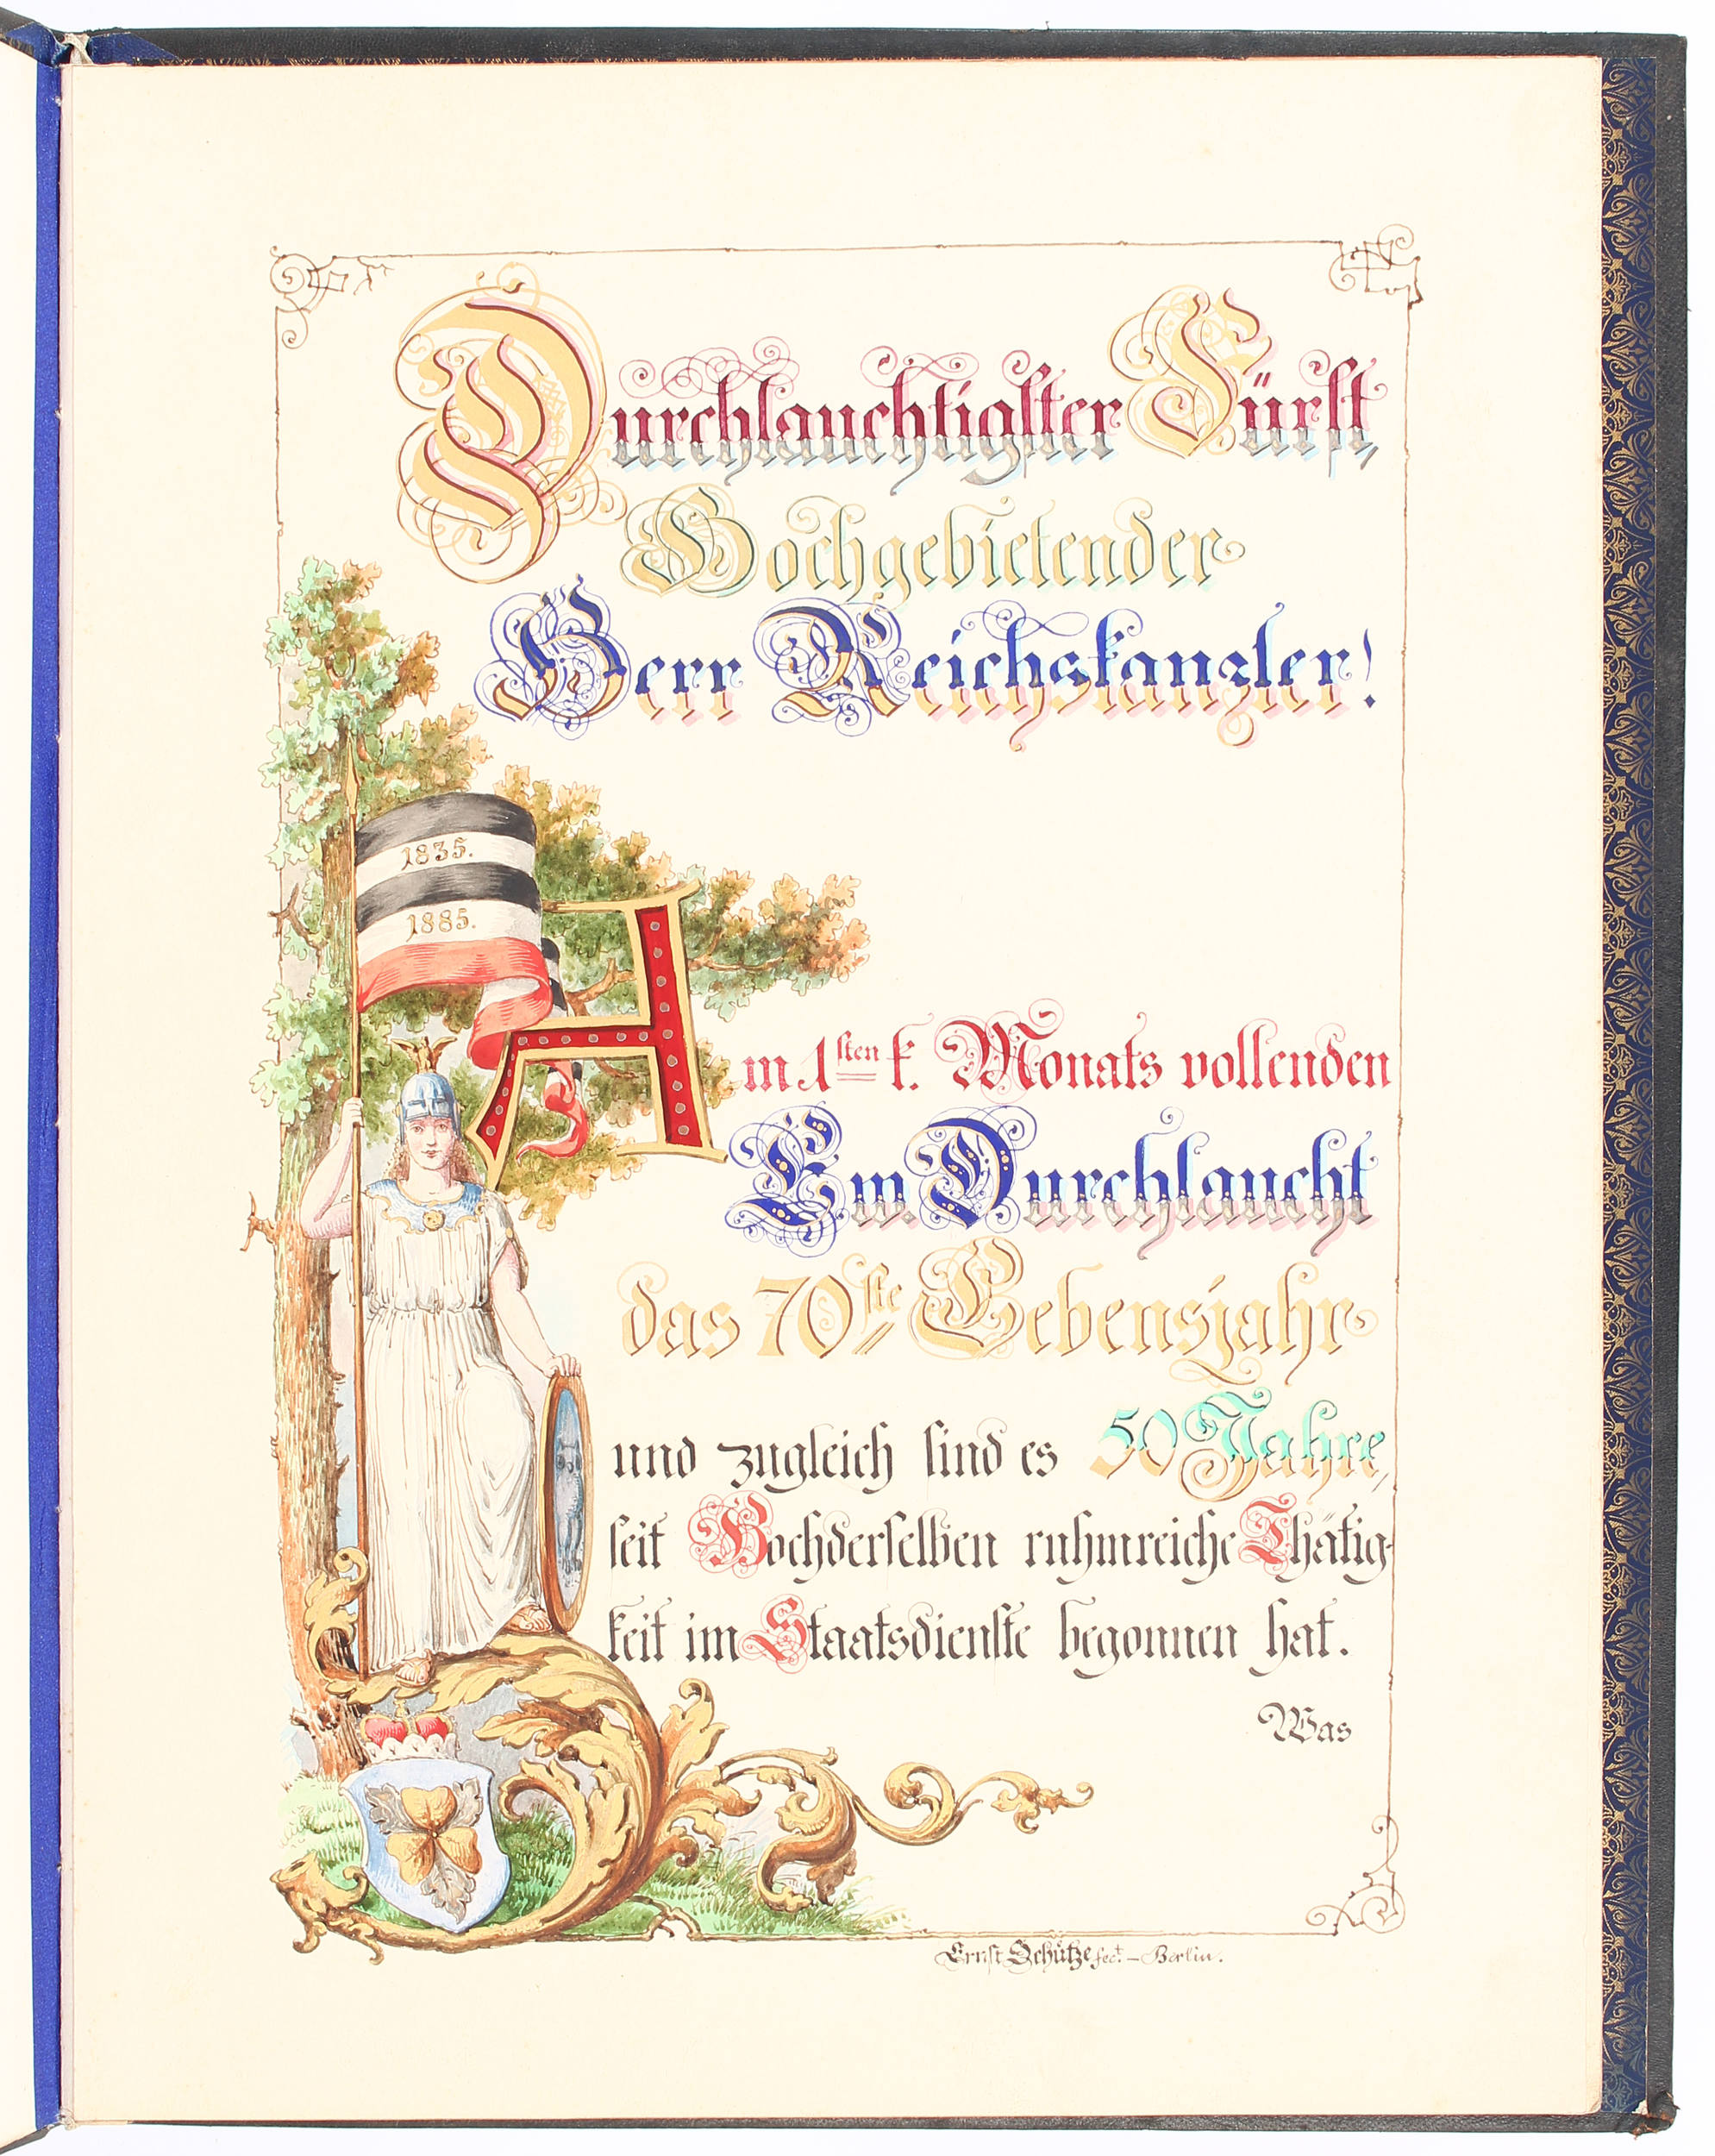 Durchlauchtigster Fürst,
Hochgebietender
Herr Reichskanzler!
1835.
1885.
Am 1sten k. Monats vollenden
Ew. Durchlaucht
das 70ste Lebensjahr
und zugleich sind es 50 Jahre,
seit Hochderselben ruhmreiche Thätig-
keit im Staatsdienste begonnen hat.
Was
Ernst Schütze fect. – Berlin.